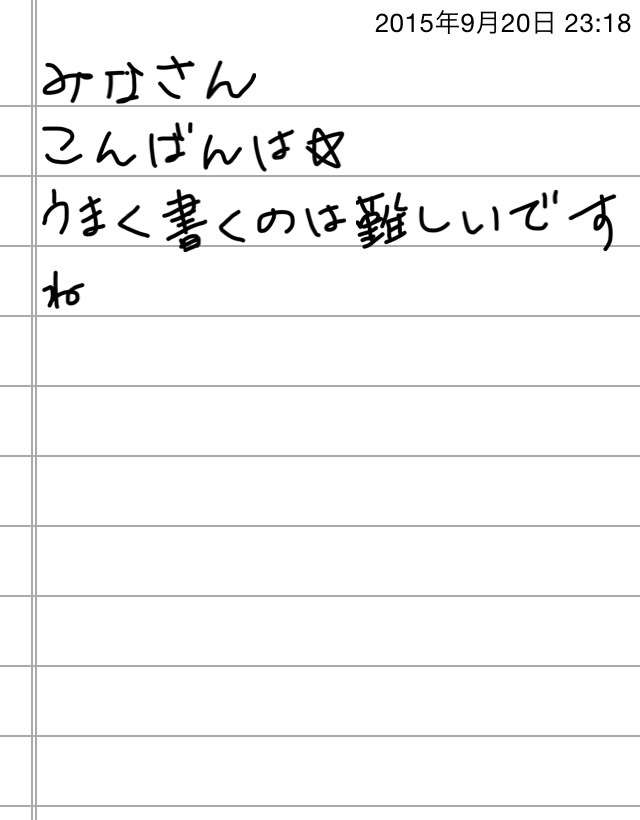 2015年9月20日 23:18
みなさん
こんばんは☆
うまく書くのは難しいです
ね